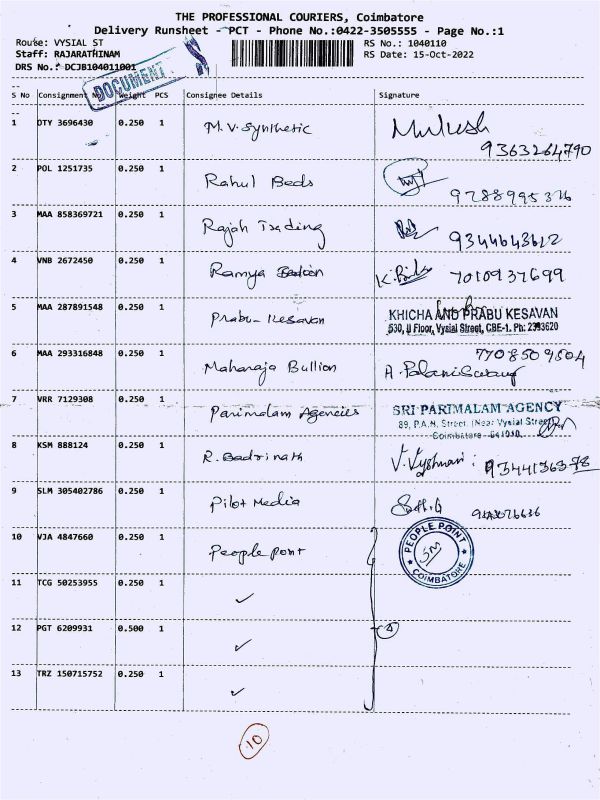 THE PROFESSIONAL COURIERS, Coimbatore
Delivery Runsheet - PCT - Phone No.:0422-3505555 - Page No.:1
Route: VYSIAL ST RS No.: 1040110
Staff: RAJARATHINAM RS Date: 15-Oct-2022
DRS No.: DCJB104011001
DOCUMENT
S No Consignment No Weight PCS Consignee Details Signature
1 OTY 3696430 0.250 1 M.V. Synthetic Mukesh
9363264790
2 POL 1251735 0.250 1 Rahul Beds
3 MAA 858369721 0.250 1 Rajah Trading 9344643612
4 VNB 2672450 0.250 1 Ramya 7010937699
5 MAA 287891548 0.250 1 Prabu - Kesavan KHICHA AND PRABU KESAVAN
530, II Floor, Vysial Street, CBE-1. Ph: 2393620
6 MAA 293316848 0.250 1 Maharaja Bullion 7708509504
7 VRR 7129308 0.250 1 Parimalam Agencies SRI PARIMALAM AGENCY
89, P.A.N. Street, (Near Vysial Street)
Coimbatore - 641001.
8 KSM 888124 0.250 1 R. Badrinath
9 SLM 305402786 0.250 1 Pilot Media
10 VJA 4847660 0.250 1 People point PEOPLE POINT
COIMBATORE
11 TCG 50253955 0.250 1 ✓
12 PGT 6209931 0.500 1 ✓ 4
13 TRZ 150715752 0.250 1 ✓
10